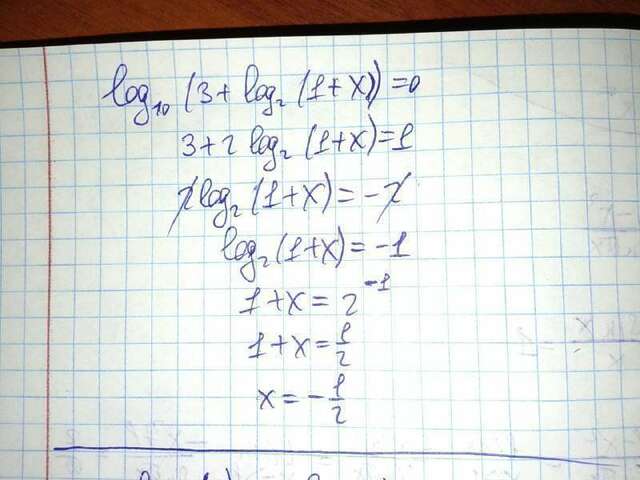 log₁₀ (3 + log₂ (1 + x)) = 0
3 + 2 log₂ (1 + x) = 1
2 log₂ (1 + x) = -2
log₂ (1 + x) = -1
1 + x = 2⁻¹
1 + x = 1/2
x = -1/2